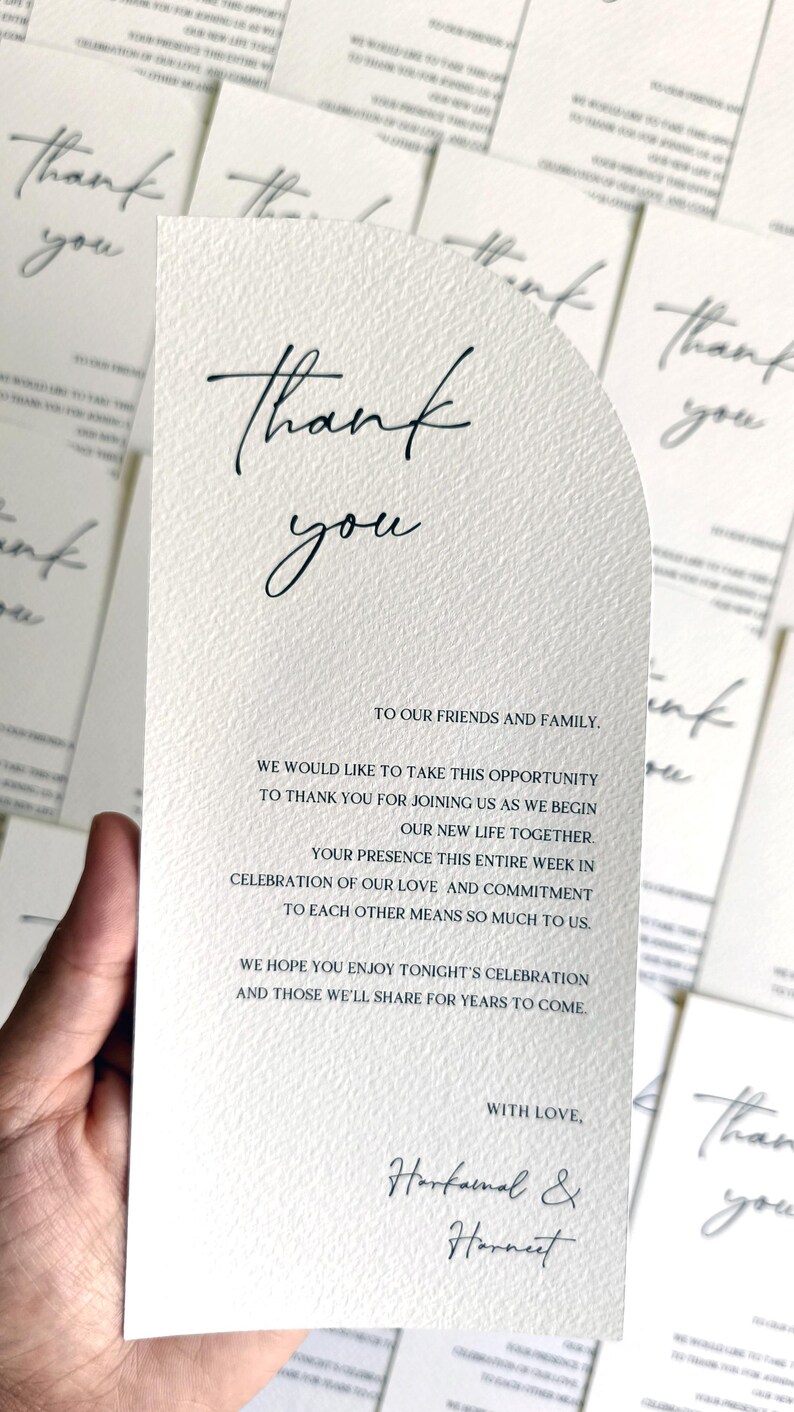 thank
you
TO OUR FRIENDS AND FAMILY,
WE WOULD LIKE TO TAKE THIS OPPORTUNITY
TO THANK YOU FOR JOINING US AS WE BEGIN
OUR NEW LIFE TOGETHER.
YOUR PRESENCE THIS ENTIRE WEEK IN
CELEBRATION OF OUR LOVE AND COMMITMENT
TO EACH OTHER MEANS SO MUCH TO US.
WE HOPE YOU ENJOY TONIGHT'S CELEBRATION
AND THOSE WE'LL SHARE FOR YEARS TO COME.
WITH LOVE,
Harkamal &
Harneet